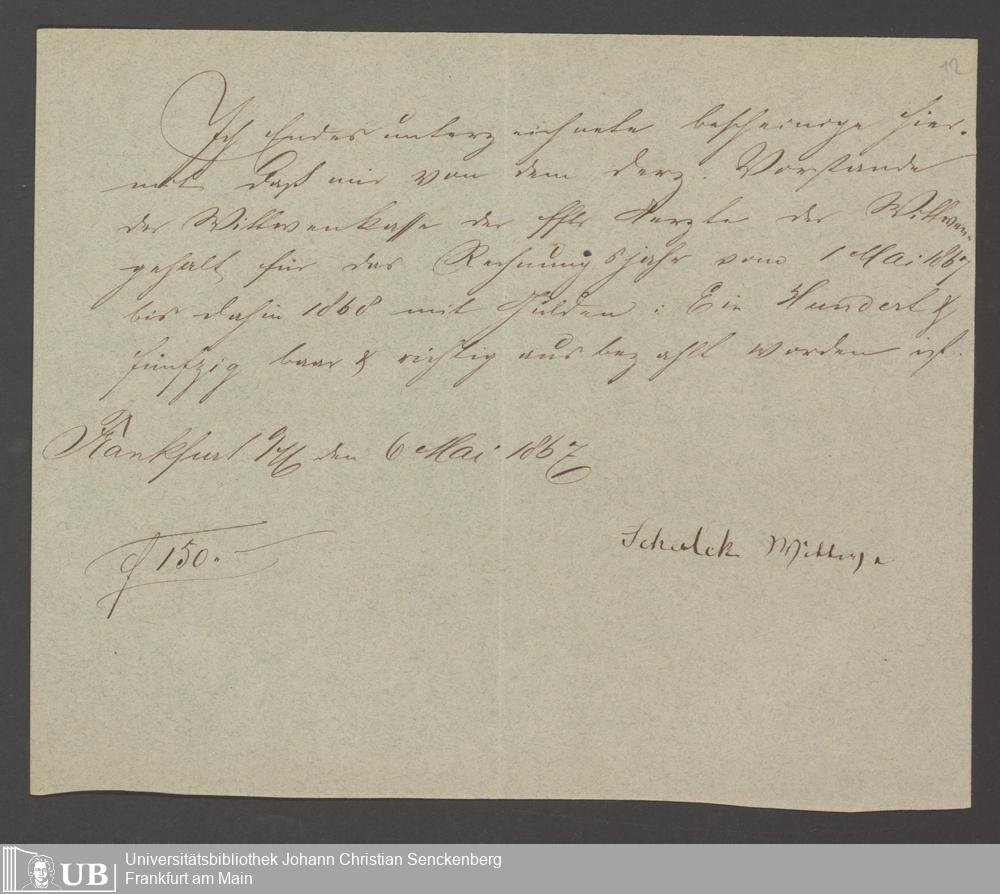 12
Ich Endes unterzeichnete bescheinige hier-
mit daß mir von dem derz. Vorstande
der Wittwenkasse der Ffter Aerzte der Wittwen-
gehalt für das Rechnungsjahr vom 1 Mai 1867
bis dahin 1868 mit Gulden: Ein Hundert &
fünfzig baar & richtig ausbezahlt worden ist.
Frankfurt a/M den 6 Mai 1867
f 150.—
Schalck Wittwe
UB Universitätsbibliothek Johann Christian Senckenberg
Frankfurt am Main